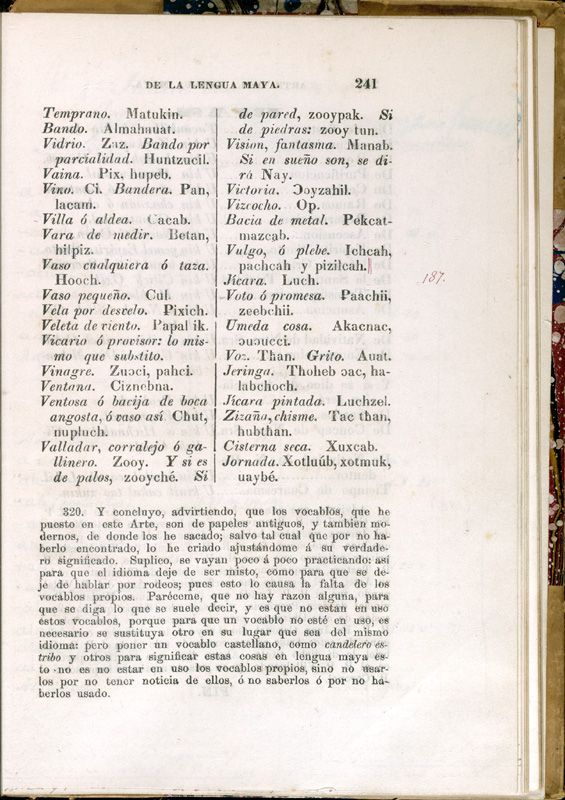 DE LA LENGUA MAYA. 241
Temprano. Matukin.
Bando. Almahauat.
Vidrio. Zaz. Bando por
parcialidad. Huntzucil.
Vaina. Pix, hupeb.
Vino. Ci. Bandera. Pan,
lacam.
Villa ó aldea. Cacab.
Vara de medir. Betan,
hilpiz.
Vaso cualquiera ó taza.
Hooch.
Vaso pequeño. Cul.
Vela por desvelo. Pixich.
Veleta de viento. Papal ik.
Vicario ó provisor: lo mis-
mo que substito.
Vinagre. Zuɔci, pahci.
Ventana. Ciznebna.
Ventosa ó bacija de boca
angosta, ó vaso así Chut,
nupluch.
Valladar, corralejo ó ga-
llinero. Zooy. Y si es
de palos, zooyché. Si
de pared, zooypak. Si
de piedras: zooy tun.
Vision, fantasma. Manab.
Si en sueño son, se di-
rá Nay.
Victoria. Ɔoyzahil.
Vizcocho. Op.
Bacia de metal. Pekcat-
mazcab.
Vulgo, ó plebe. Ichcah,
pachcah y pizilcah.
Jícara. Luch.
187.
Voto ó promesa. Paachii,
zeebchii.
Umeda cosa. Akacnac,
ɔuɔucci.
Voz. Than. Grito. Auat.
Jeringa. Thoheb ɔac, ha-
labchoch.
Jícara pintada. Luchzel.
Zizaña, chisme. Tac than,
hubthan.
Cisterna seca. Xuxcab.
Jornada. Xotluúb, xotmuk,
uaybé.
320. Y concluyo, advirtiendo, que los vocablos, que he
puesto en este Arte, son de papeles antiguos, y tambien mo-
dernos, de donde los he sacado; salvo tal cual que por no ha-
berlo encontrado, lo he criado ajustándome á su verdade-
ro significado. Suplico, se vayan poco á poco practicando: así
para que el idioma deje de ser misto, como para que se de-
je de hablar por rodeos; pues esto lo causa la falta de los
vocablos propios. Paréceme, que no hay razon alguna, para
que se diga lo que se suele decir, y es que no están en uso
estos vocablos, porque para que un vocablo no esté en uso, es
necesario se sustituya otro en su lugar que sea del mismo
idioma: pero poner un vocablo castellano, como candelero es-
tribo y otros para significar estas cosas en lengua maya es-
to no es no estar en uso los vocablos propios, sino no usar-
los por no tener noticia de ellos, ó no saberlos ó por no ha-
berlos usado.